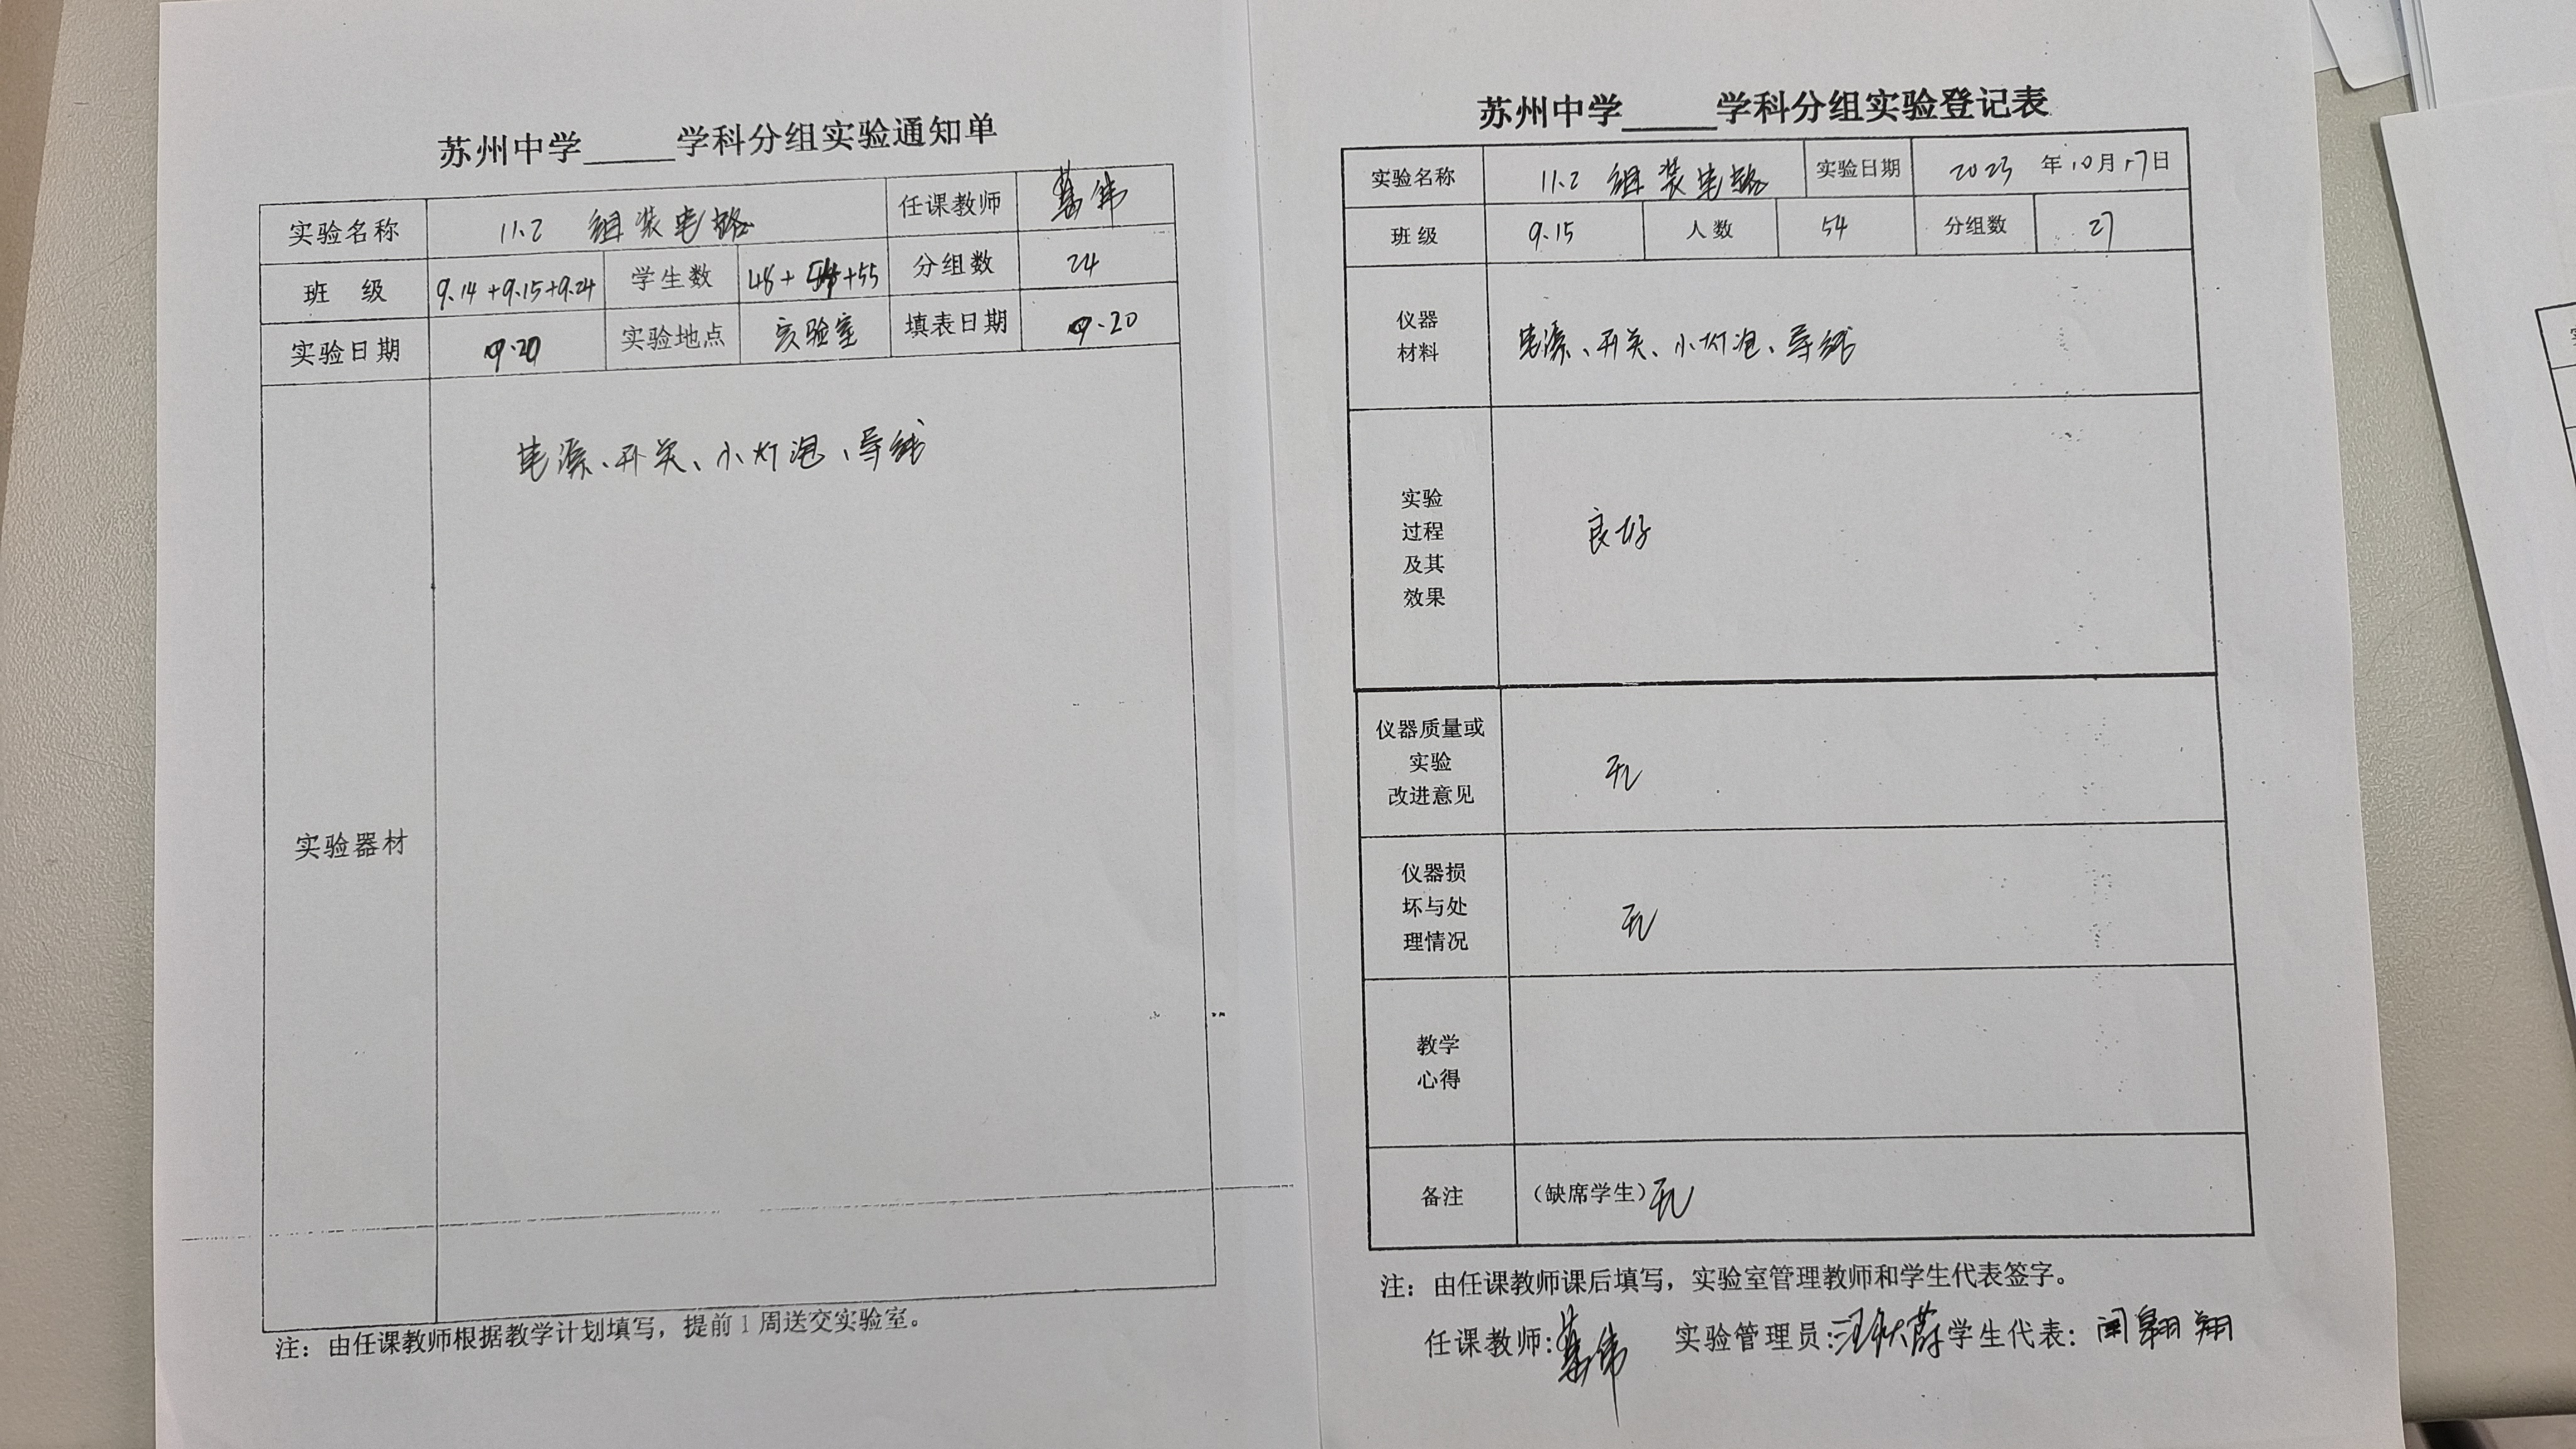 苏州中学_____学科分组实验通知单
实验名称 11.2 组装电路 任课教师
班 级 9.14+9.15+9.24 学生数 48+54+55 分组数 24
实验日期 9.20 实验地点 实验室 填表日期 9.20
实验器材 电源、开关、小灯泡、导线
注：由任课教师根据教学计划填写，提前1周送交实验室。
苏州中学_____学科分组实验登记表
实验名称 11.2 组装电路 实验日期 2023 年10月17日
班 级 9.15 人 数 54 分组数 27
仪器
材料
电源、开关、小灯泡、导线
实验
过程
及其
效果
良好
仪器质量或
实验
改进意见
无
仪器损
坏与处
理情况
无
教学
心得
备注 （缺席学生）无
注：由任课教师课后填写，实验室管理教师和学生代表签字。
任课教师： 实验管理员： 学生代表：